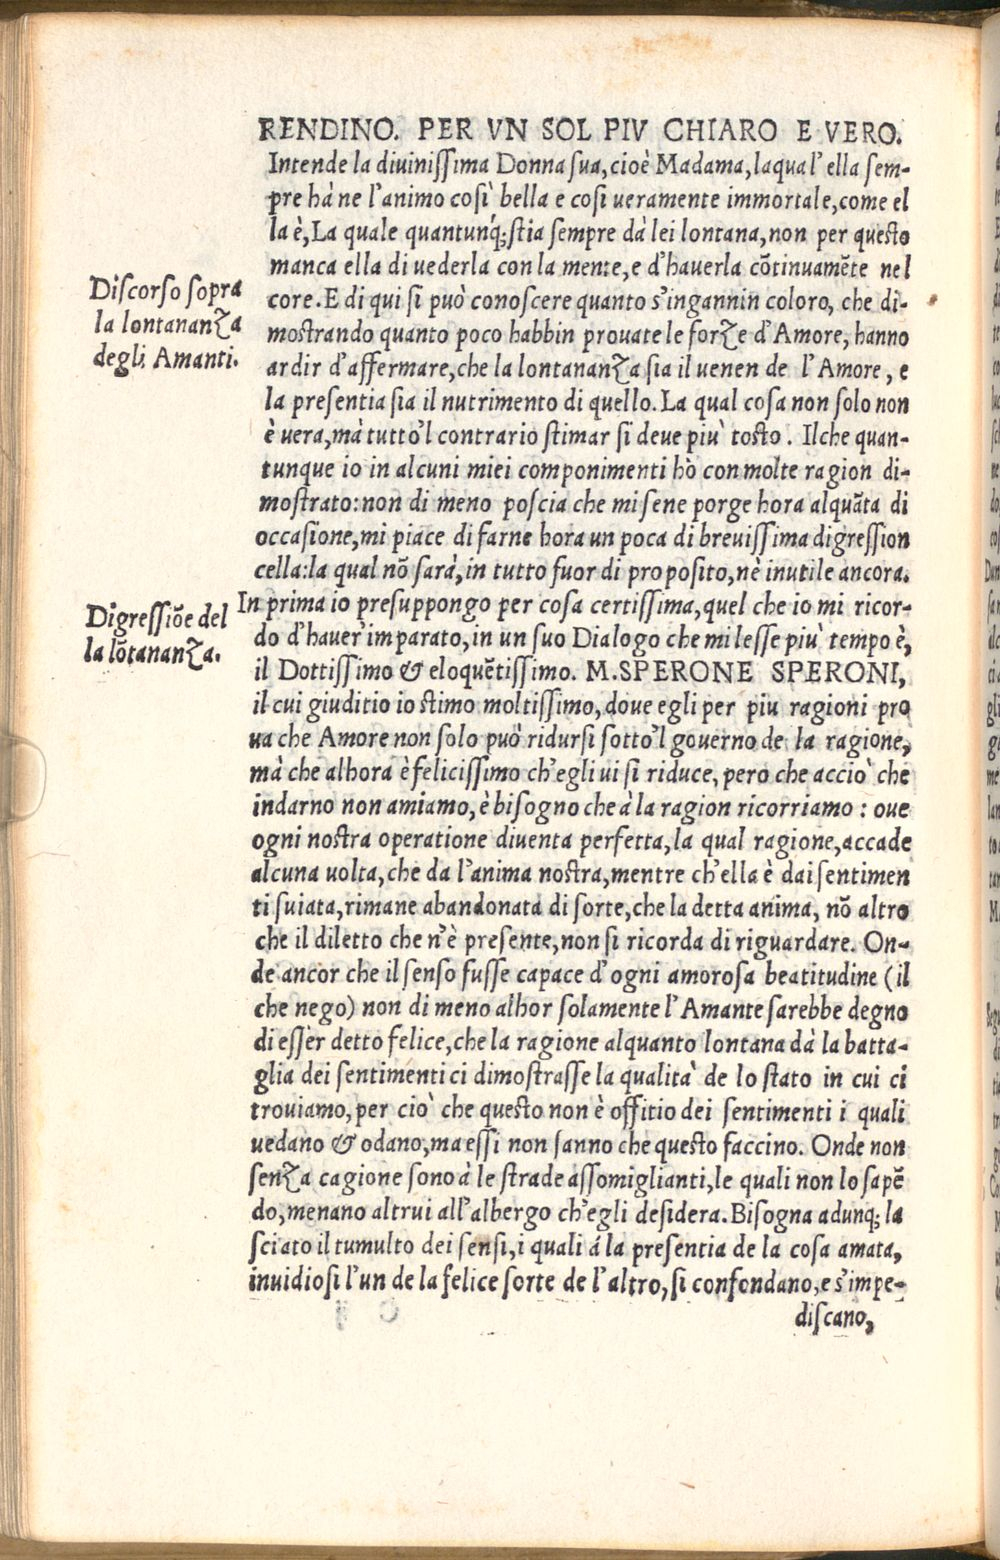 RENDINO. PER VN SOL PIV CHIARO E VERO.
Intende la diuinißima Donna sua, cioè Madama, laqual' ella sem-
pre hà ne l'animo cosi bella e cosi ueramente immortale, come el
la è, La quale quantunq; stia sempre dà lei lontana, non per questo
manca ella di uederla con la mente, e d'hauerla cõtinuamẽte nel
Discorso sopra
la lontananza
degli Amanti.
core. E di qui si può conoscere quanto s'ingannin coloro, che di-
mostrando quanto poco habbin prouate le forze d'Amore, hanno
ardir d'affermare, che la lontananza sia il uenen de l'Amore, e
la presentia sia il nutrimento di quello. La qual cosa non solo non
è uera, mà tutto'l contrario stimar si deue più tosto. Ilche quan-
tunque io in alcuni miei componimenti hò con molte ragion di-
mostrato: non di meno poscia che mi sene porge hora alquãta di
occasione, mi piace di farne hora un poca di breuissima digression
cella: la qual nõ sarà, in tutto fuor di proposito, nè inutile ancora.
Digreßiõe del
la lõtananza.
In prima io presuppongo per cosa certissima, quel che io mi ricor-
do d'hauer' imparato, in un suo Dialogo che mi lesse più tempo è,
il Dottissimo & eloquẽtissimo. M. SPERONE SPERONI,
il cui giuditio io stimo moltissimo, doue egli per piu ragioni pro
ua che Amore non solo può ridursi sotto'l gouerno de la ragione,
mà che alhora è felicissimo ch'egli ui si riduce, pero che acciò che
indarno non amiamo, è bisogno che à la ragion ricorriamo: oue
ogni nostra operatione diuenta perfetta, la qual ragione, accade
alcuna uolta, che da l'anima nostra, mentre ch'ella è dai sentimen
ti suiata, rimane abandonata di sorte, che la detta anima, nõ altro
che il diletto che n'è presente, non si ricorda di riguardare. On-
de ancor che il senso fusse capace d'ogni amorosa beatitudine (il
che nego) non di meno alhor solamente l'Amante sarebbe degno
di esser detto felice, che la ragione alquanto lontana dà la batta-
glia dei sentimenti ci dimostrasse la qualità de lo stato in cui ci
trouiamo, per ciò che questo non è offitio dei sentimenti i quali
uedano & odano, ma essi non sanno che questo faccino. Onde non
senza cagione sono à le strade assomiglianti, le quali non lo sapẽ
do, menano altrui all'albergo ch'egli desidera. Bisogna adunq; la
sciato il tumulto dei sensi, i quali á la presentia de la cosa amata,
inuidiosi l'un de la felice sorte de l'altro, si confondano, e s'impe-
discano,